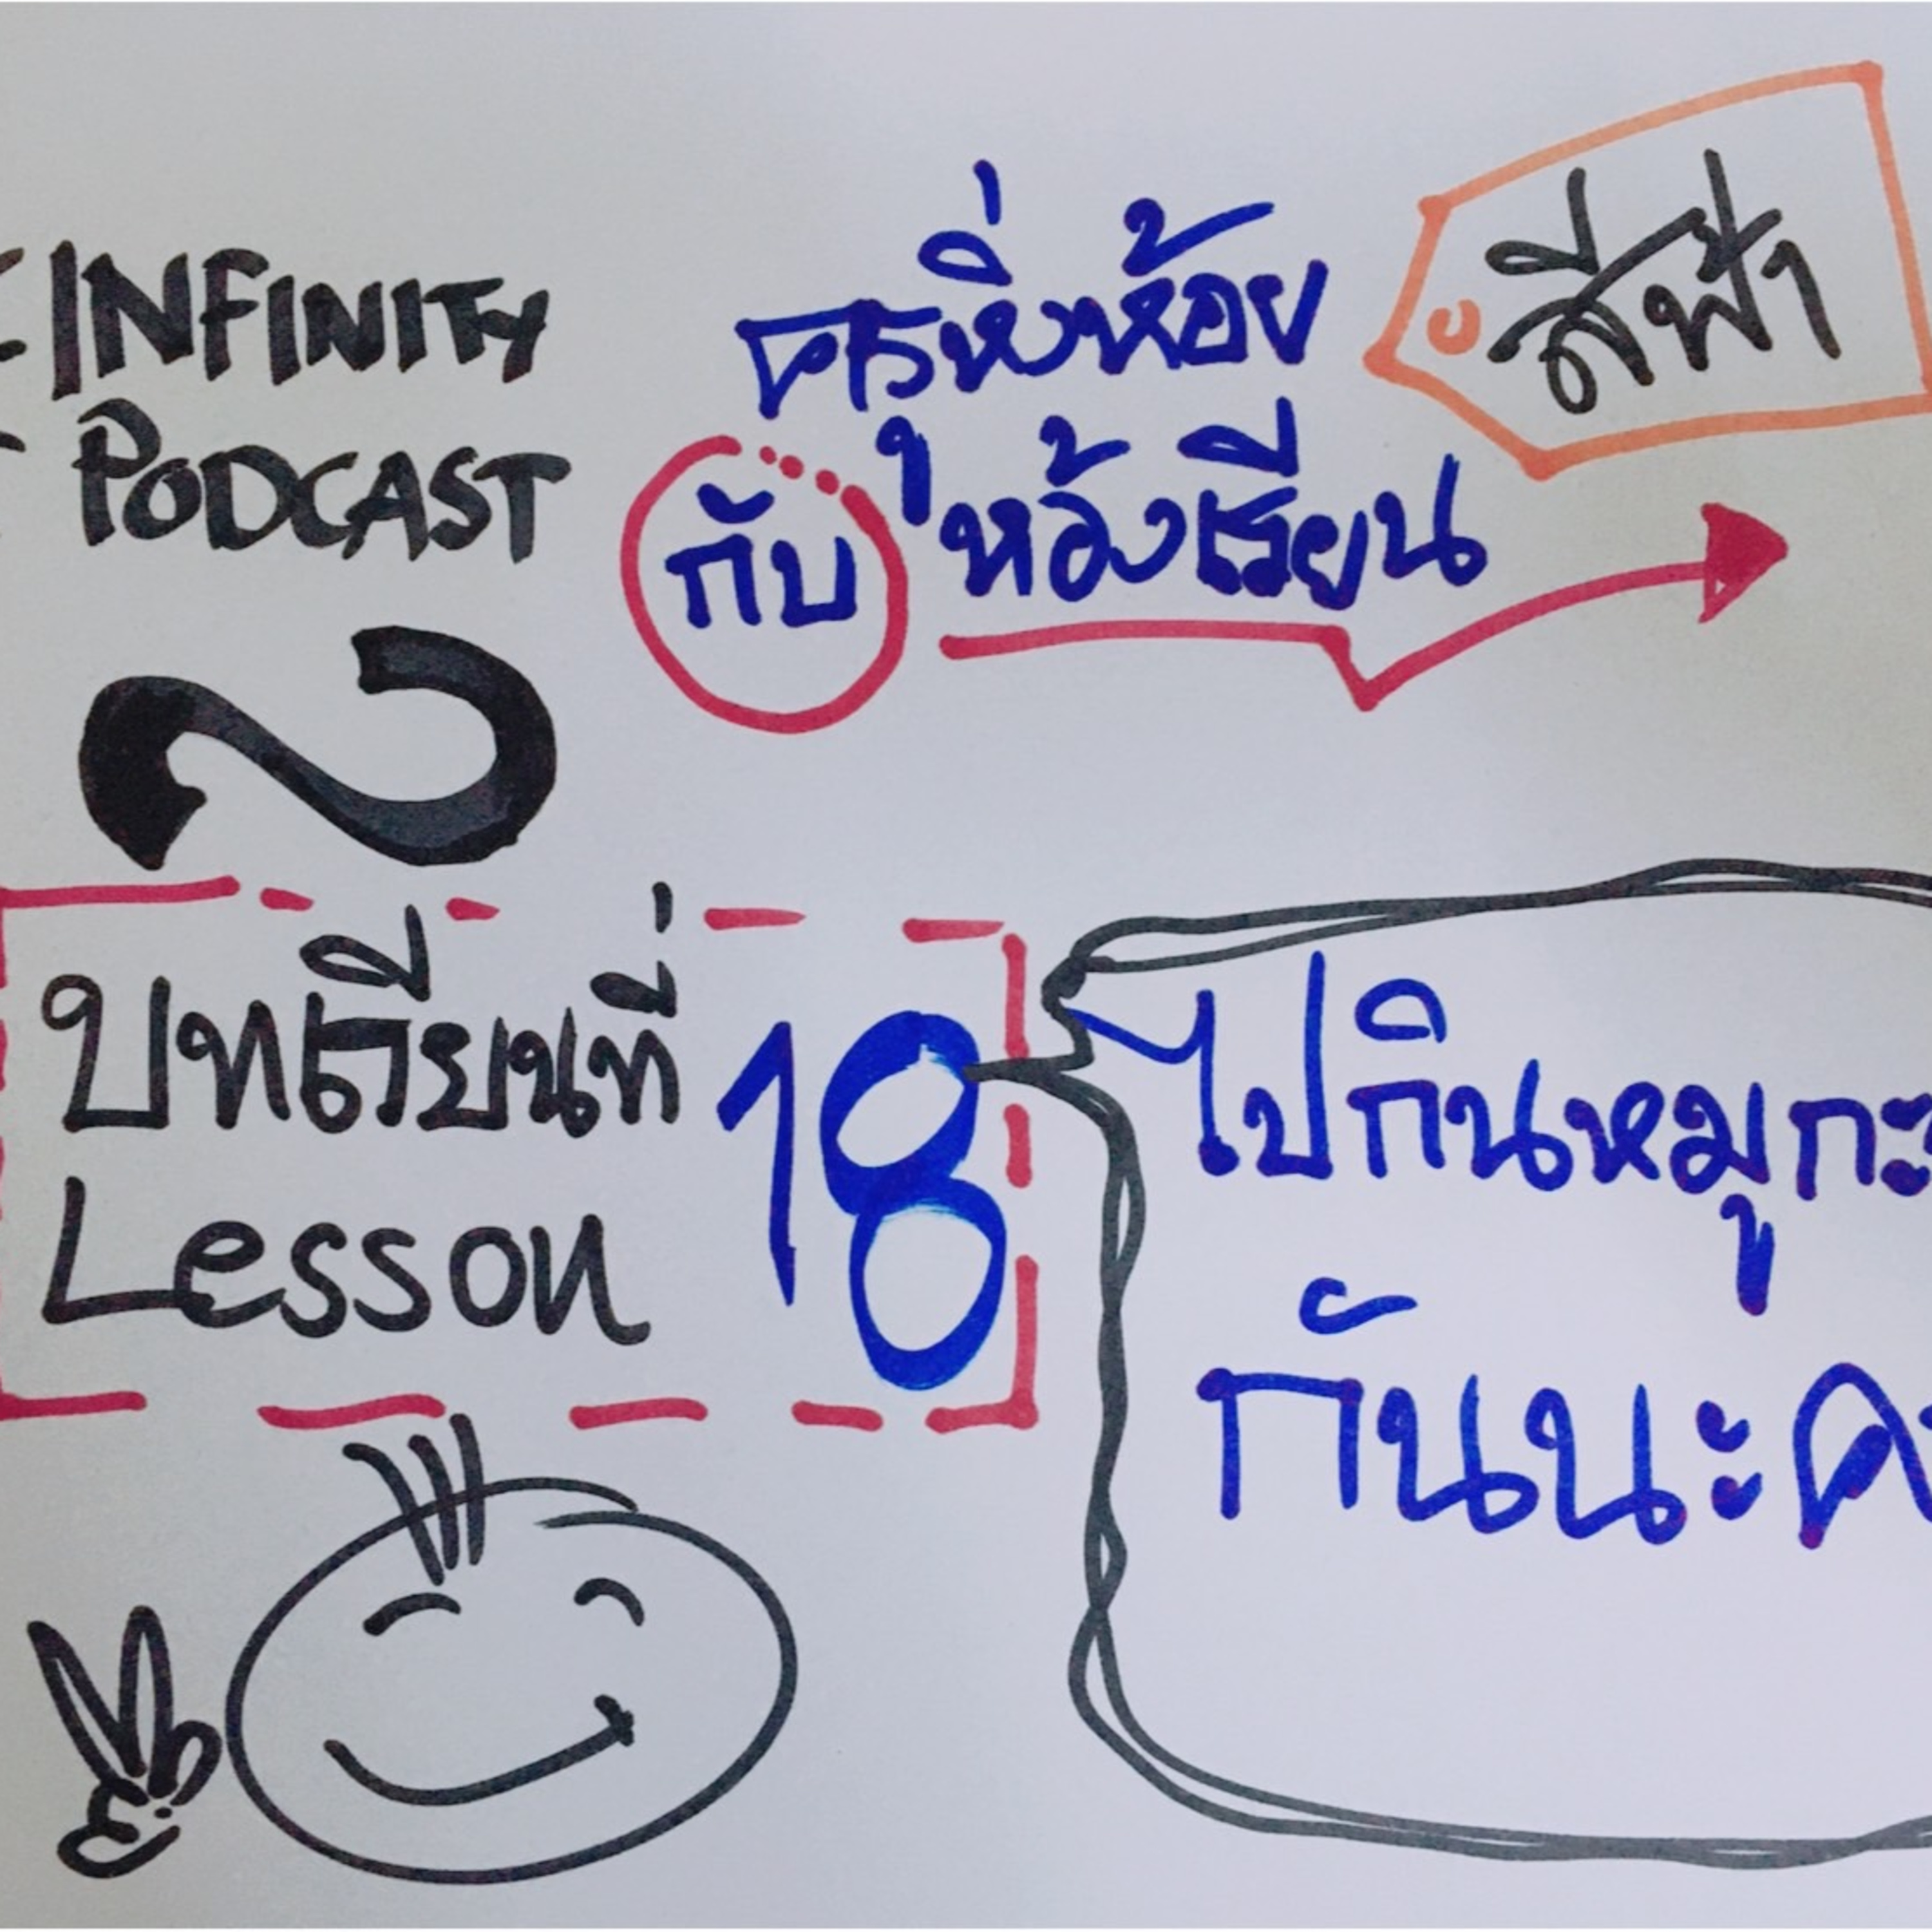 INFINITY
PODCAST
ครูหิ่งห้อย
กับ ห้องเรียน
สีฟ้า
บทเรียนที่
Lesson
18
ไปกินหมูกะ
กันนะค